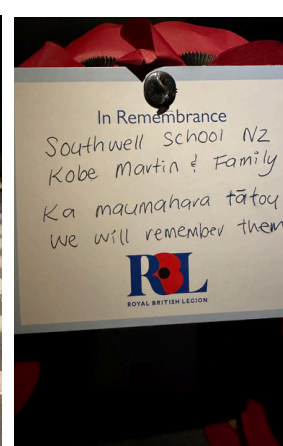 In Remembrance
Southwell School NZ
Kobe Martin & Family
Ka maumahara tātou
We will remember them
RBL
ROYAL BRITISH LEGION